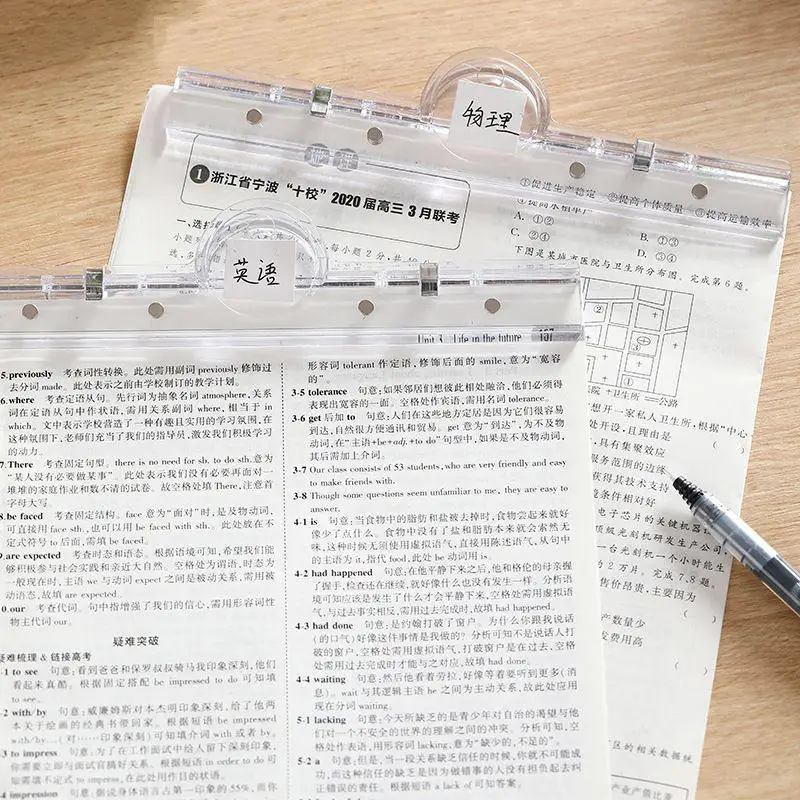 物理
1 浙江省宁波“十校”2020届高三3月联考
一、选择
小题
每小题2分,共
①促进生产稳定 ②提高个体质量 ③提高运输效率
A. ①② B. ①③
C. ②④ D. ③④
下图是某城市医院与卫生所分布图。完成第6题。
卫生所 公路
想开一家私人卫生所,根据“中心
处开设,且理由是
,具有集聚效应
服务范围的边缘
获得其技术支持
境条件相对好
电子芯片的关键机器
顶级光刻机研发生产公司
一台光刻机一个小时能生
2万片。完成7、8题。
售价昂贵,主要因为
产数量少
发费用高
区的相关数据统
产业产值比
英语
Unit 3 Life in the future 157
5.previously 考查词性转换。此处需用副词 previously 修饰过
去分词 made。此处表示之前由学校制订的教学计划。
6.where 考查定语从句。先行词为抽象名词 atmosphere,关系
词在定语从句中作状语,需用关系副词 where,相当于 in
which。文中表示学校营造了一种有趣且实用的学习氛围,在
这种氛围下,老师们充当了我们的指导员,激发我们积极学习
的动力。
7.There 考查固定句型。there is no need for sb. to do sth.意为
“某人没有必要做某事”。此处表示我们没有必要再面对一
堆堆的家庭作业和数不清的试卷。故空格处填 There,注意首
字母大写。
8.be faced 考查固定结构。face 意为“面对”时,是及物动词,
可直接用 face sth.,也可以用 be faced with sth.。此处放在不
定式符号 to 后面,需填 be faced。
9.are expected 考查时态和语态。根据语境可知,希望我们能
够积极参与社会实践和亲近大自然。空格处为谓语,时态为
一般现在时,主语 we 与动词 expect 之间是被动关系,需用被
动语态,故填 are expected。
0.our 考查代词。句中指增强了我们的信心,需用形容词性
物主代词 our。
疑难突破
疑难梳理 & 链接高考
-1 to see 句意:看到爸爸和保罗叔叔骑马我印象深刻,他们
看起来真酷。根据固定搭配 be impressed to do 可知填
to see。
-2 with/by 句意:威廉姆斯对本杰明印象深刻,给了他两
本关于绘画的经典书带回家。根据短语 be impressed
with/by...(对……印象深刻)可知填介词 with 或者 by。
3 to impress 句意:为了在工作面试中给人留下深刻印象,
你需要立即与面试官搞好关系。根据短语 in order to do 可
知需填不定式 to impress,在此处作目的状语。
4 impression 句意:据说身体语言占第一印象的55%,而你
形容词 tolerant 作定语,修饰后面的 smile,意为“宽容
的”。
3-5 tolerance 句意:如果邻居们想彼此相处融洽,他们必须得
表现出宽容的一面。空格处作宾语,需用名词 tolerance。
3-6 get 后加 to 句意:人们在这些地方定居是因为它们很容易
到达,自然很方便通讯和贸易。get 意为“到达”,为不及物
动词,在“主语+be+adj.+to do”句型中,如果是不及物动词,
其后需加上介词。
3-7 Our class consists of 53 students, who are very friendly and easy
to make friends with.
3-8 Though some questions seem unfamiliar to me, they are easy to
answer.
4-1 is 句意:当食物中的脂肪和盐被去掉时,食物尝起来就好
像少了点什么。食物中没有了盐和脂肪本来就会索然无
味,这种时候无须使用虚拟语气,直接用陈述语气,从句中
的主语为 it,指代 food,此处 be 动词用 is。
4-2 had happened 句意:在他平静下来之后,他和格伦的母亲握
了握手,检查还在继续,就好像什么也没有发生一样。分析语
境可知应该是发生了什么才会平静下来,空格处需用虚拟语
气,与过去事实相反,需用过去完成时,故填 had happened。
4-3 had done 句意:是约翰打破了窗户。为什么你跟我说话
(的口气)好像这件事情是我做的?分析可知不是说话人打
破的窗户,空格处需用虚拟语气,打破窗户是在过去,空格
处需用过去完成时才能与之对应,故填 had done。
4-4 waiting 句意:然后他看着劳拉,好像等着要听到更多(消
息)。wait 与其逻辑主语 he 之间为主动关系,故此处应用
现在分词 waiting。
5-1 lacking 句意:今天所缺乏的是青少年对自治的渴望与他
们对一个不安全的世界的理解之间的冲突。分析可知,空
格处作表语,用形容词 lacking,意为“缺少的,不足的”。
5-2 a 句意:但是,当一段关系缺乏信任的时候,你就不可能成
功,而这种信任的缺乏是因为做错事的人没有担负起去纠
正错误的责任。根据短语 a lack of 可知答案。